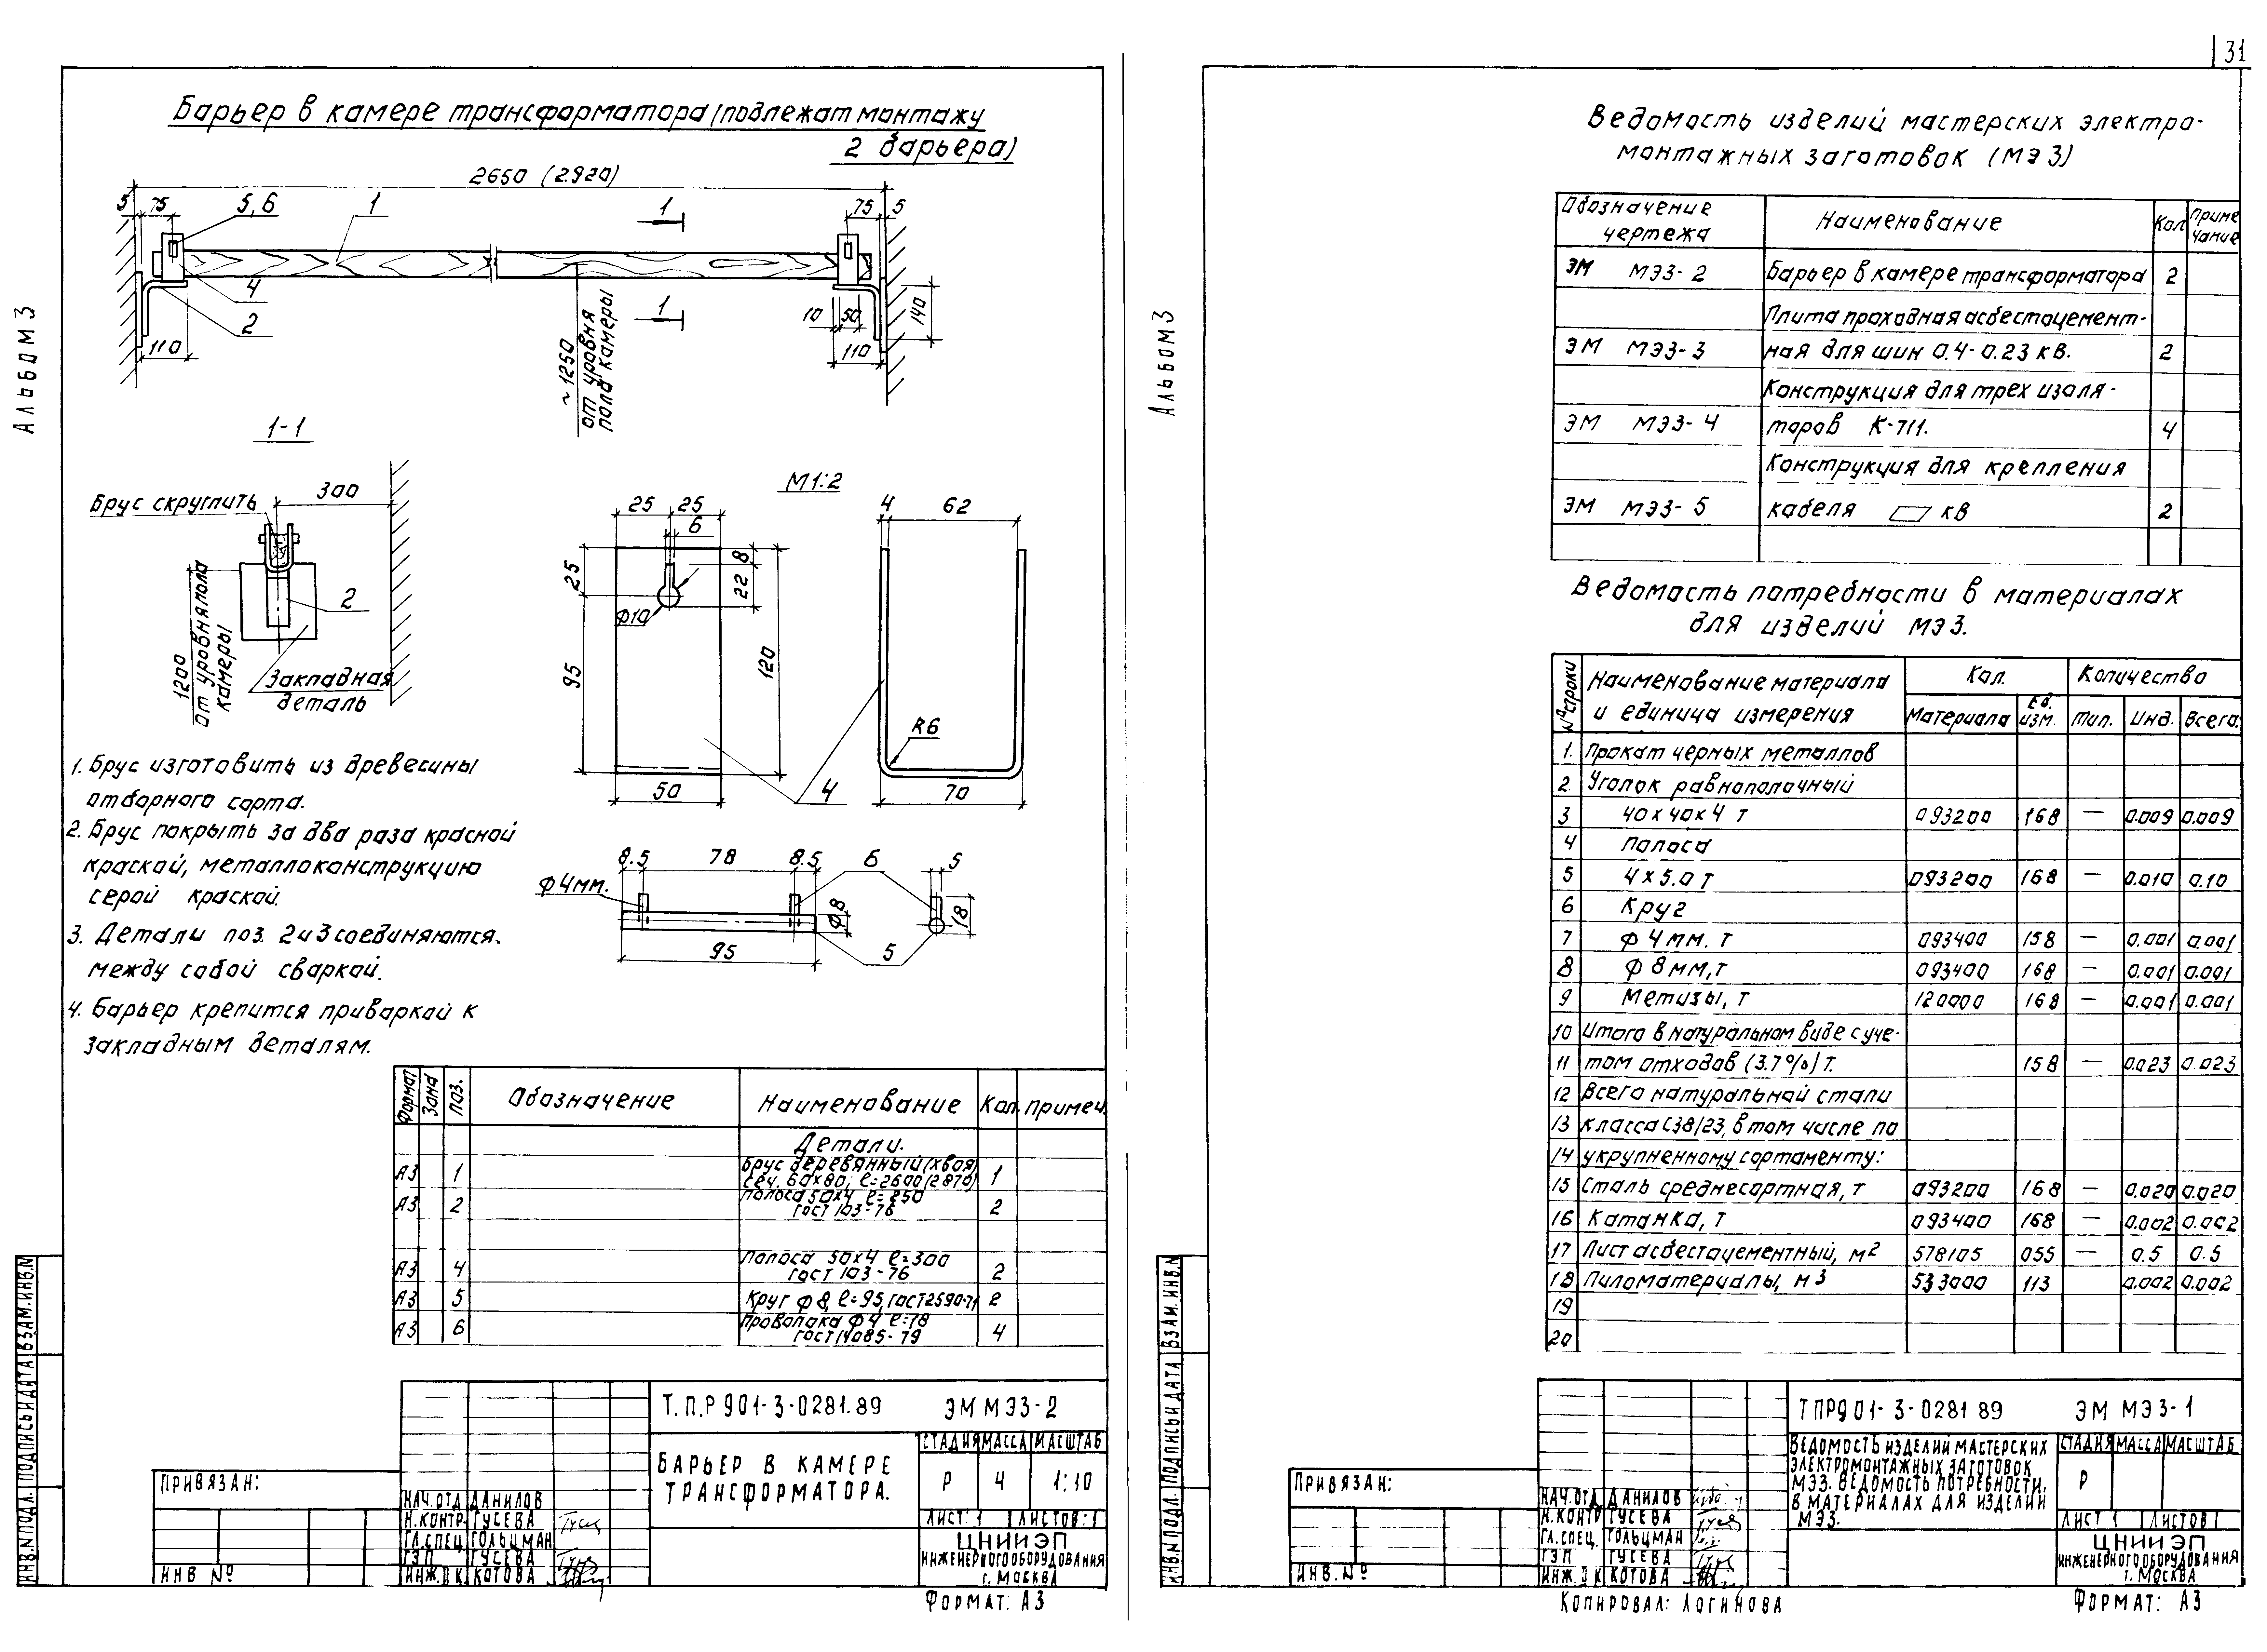 31
Альбом 3
Барьер в камере трансформатора (подлежат монтажу
2 барьера)
2650 (2920)
5
75
5,6
1
1
75
5
4
2
110
10
50
110
140
1
~1250
от уровня
пола камеры
1-1
Брус скруглить
300
2
1200
от уровня пола
камеры
Закладная
деталь
М1:2
25
25
6
8
22
25
ф10
95
120
50
4
4
62
R6
70
8.5
78
8.5
6
5
ф4мм.
ф8
18
95
5
1. Брус изготовить из древесины
отборного сорта.
2. Брус покрыть за два раза красной
краской, металлоконструкцию
серой краской.
3. Детали поз. 2 и 3 соединяются.
между собой сваркой.
4. Барьер крепится приваркой к
закладным деталям.
Формат Зона Поз. Обозначение Наименование Кол. Примеч.
Детали.
А3 1 Брус деревянный (хвоя) сеч. 60х80; ℓ=2600(2870) 1
А3 2 Полоса 50х4 ℓ=250 ГОСТ 103-76 2
А3 4 Полоса 50х4 ℓ=300 ГОСТ 103-76 2
А3 5 Круг ф8, ℓ=95, ГОСТ 2590-71 2
А3 6 Проволока ф4 ℓ=18 ГОСТ 14085-79 4
Т.П.Р 901-3-0281.89 ЭМ МЭЗ-2
БАРЬЕР В КАМЕРЕ
ТРАНСФОРМАТОРА.
СТАДИЯ МАССА МАСШТАБ
Р 4 1:10
ЛИСТ: 1 ЛИСТОВ: 1
ЦНИИЭП
ИНЖЕНЕРНОГО ОБОРУДОВАНИЯ
г. МОСКВА
НАЧ. ОТД ДАНИЛОВ
Н. КОНТР. ГУСЕВА
ГЛ. СПЕЦ. ГОЛЬЦМАН
ГЭП ГУСЕВА
ИНЖ. II К. КОТОВА
ПРИВЯЗАН:
ИНВ. №
ИНВ. N ПОДЛ. ПОДПИСЬ И ДАТА ВЗАМ. ИНВ. N
ФОРМАТ: А3
Альбом 3
Ведомость изделий мастерских электро-
монтажных заготовок (МЭЗ)
Обозначение чертежа Наименование Кол Примечание
ЭМ МЭЗ-2 Барьер в камере трансформатора 2
Плита проходная асбестоцемент-
ЭМ МЭЗ-3 ная для шин 0.4-0.23 кв. 2
Конструкция для трех изоля-
ЭМ МЭЗ-4 торов К-711. 4
Конструкция для крепления
ЭМ МЭЗ-5 кабеля кв 2
Ведомость потребности в материалах
для изделий МЭЗ.
№ строки Наименование материала и единица измерения Кол. Количество
Материала Ед. изм. Тип. Инд. Всего.
1. Прокат черных металлов
2. Уголок равнополочный
3 40х40х4 т 093200 168 — 0.009 0.009
4 Полоса
5 4х5.0 т 093200 168 — 0.010 0.10
6 Круг
7 ф 4 мм. т 093400 158 — 0.001 0.001
8 ф 8 мм, т 093400 168 — 0.001 0.001
9 Метизы, т 120000 168 — 0.001 0.001
10 Итого в натуральном виде с уче-
11 том отходов (3.7%) т. 158 — 0.023 0.023
12 Всего натуральной стали
13 класса С38/23, в том числе по
14 укрупненному сортаменту:
15 Сталь среднесортная, т 093200 168 — 0.020 0.020
16 Катанка, т 093400 168 — 0.002 0.002
17 Лист асбестоцементный, м² 578105 055 — 0.5 0.5
18 Пиломатериалы, м³ 533000 113 0.002 0.002
19
20
ТПР901-3-0281 89 ЭМ МЭЗ-1
ВЕДОМОСТЬ ИЗДЕЛИЙ МАСТЕРСКИХ
ЭЛЕКТРОМОНТАЖНЫХ ЗАГОТОВОК
МЭЗ. ВЕДОМОСТЬ ПОТРЕБНОСТИ,
В МАТЕРИАЛАХ ДЛЯ ИЗДЕЛИЙ
МЭЗ.
СТАДИЯ МАССА МАСШТАБ
Р
ЛИСТ 1 ЛИСТОВ 1
ЦНИИЭП
ИНЖЕНЕРНОГО ОБОРУДОВАНИЯ
г. МОСКВА
НАЧ. ОТД. ДАНИЛОВ
Н. КОНТР ГУСЕВА
ГЛ. СПЕЦ. ГОЛЬЦМАН
ГЭП ГУСЕВА
ИНЖ. II К КОТОВА
ПРИВЯЗАН:
ИНВ. №
ИНВ. N ПОДЛ. ПОДПИСЬ И ДАТА ВЗАМ. ИНВ. N
КОПИРОВАЛ: ЛОГИНОВА
ФОРМАТ: А3